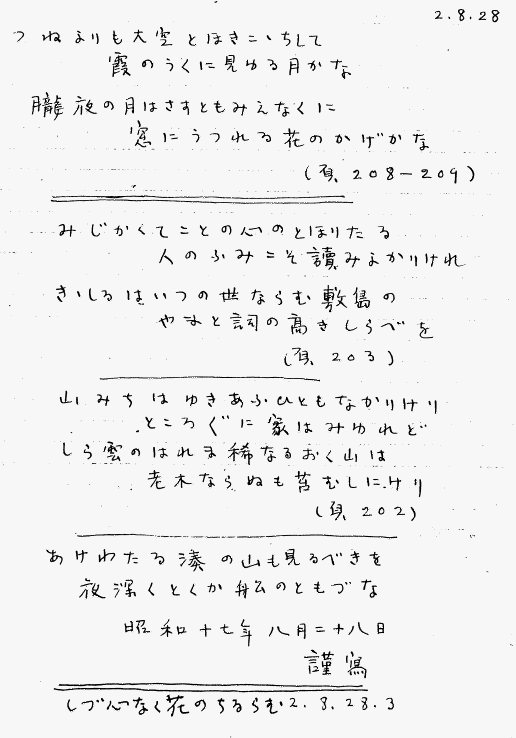 2.8.28
つねよりも大空とほきこゝちして
霞のうくに見ゆる月かな
朧夜の月はさすともみえなくに
窓にうつれる花のかげかな
(頁 208-209)
みじかくてことの心のとほりたる
人のふみこそ讀みよかりけれ
きゝしるはいつの世ならむ敷島の
やまと詞の高きしらべを
(頁 203)
山みちはゆきあふひともなかりけり
ところ〴〵に家はみゆれど
しら雲のはれま稀なるおく山は
老木ならぬも苔むしにけり
(頁 202)
あけわたる湊の山も見るべきを
夜深くとくか舩のともづな
昭和十七年八月二十八日
謹寫
しづ心なく花のちるらむ 2.8.28.3